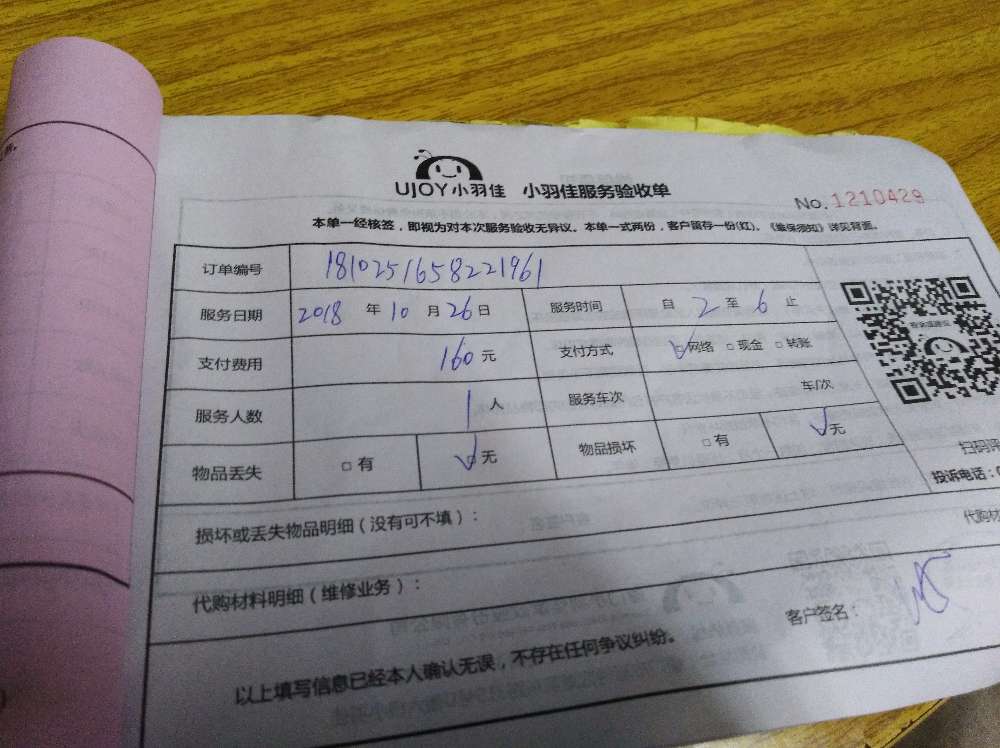 UJOY小羽佳 小羽佳服务验收单
No.1210429
本单一经核签，即视为对本次服务验收无异议。本单一式两份，客户留存一份(红)。《维保须知》详见背面。
订单编号 1810251658221961
服务日期 2018 年 10 月 26 日 服务时间 自 2 至 6 止
支付费用 160 元 支付方式 ☑网络 □现金 □转账
服务人数 1 人 服务车次 车/次
物品丢失 □有 ☑无 物品损坏 □有 ☑无
扫码评
投诉电话：0
损坏或丢失物品明细（没有可不填）：
代购材
代购材料明细（维修业务）：
客户签名：
以上填写信息已经本人确认无误，不存在任何争议纠纷。